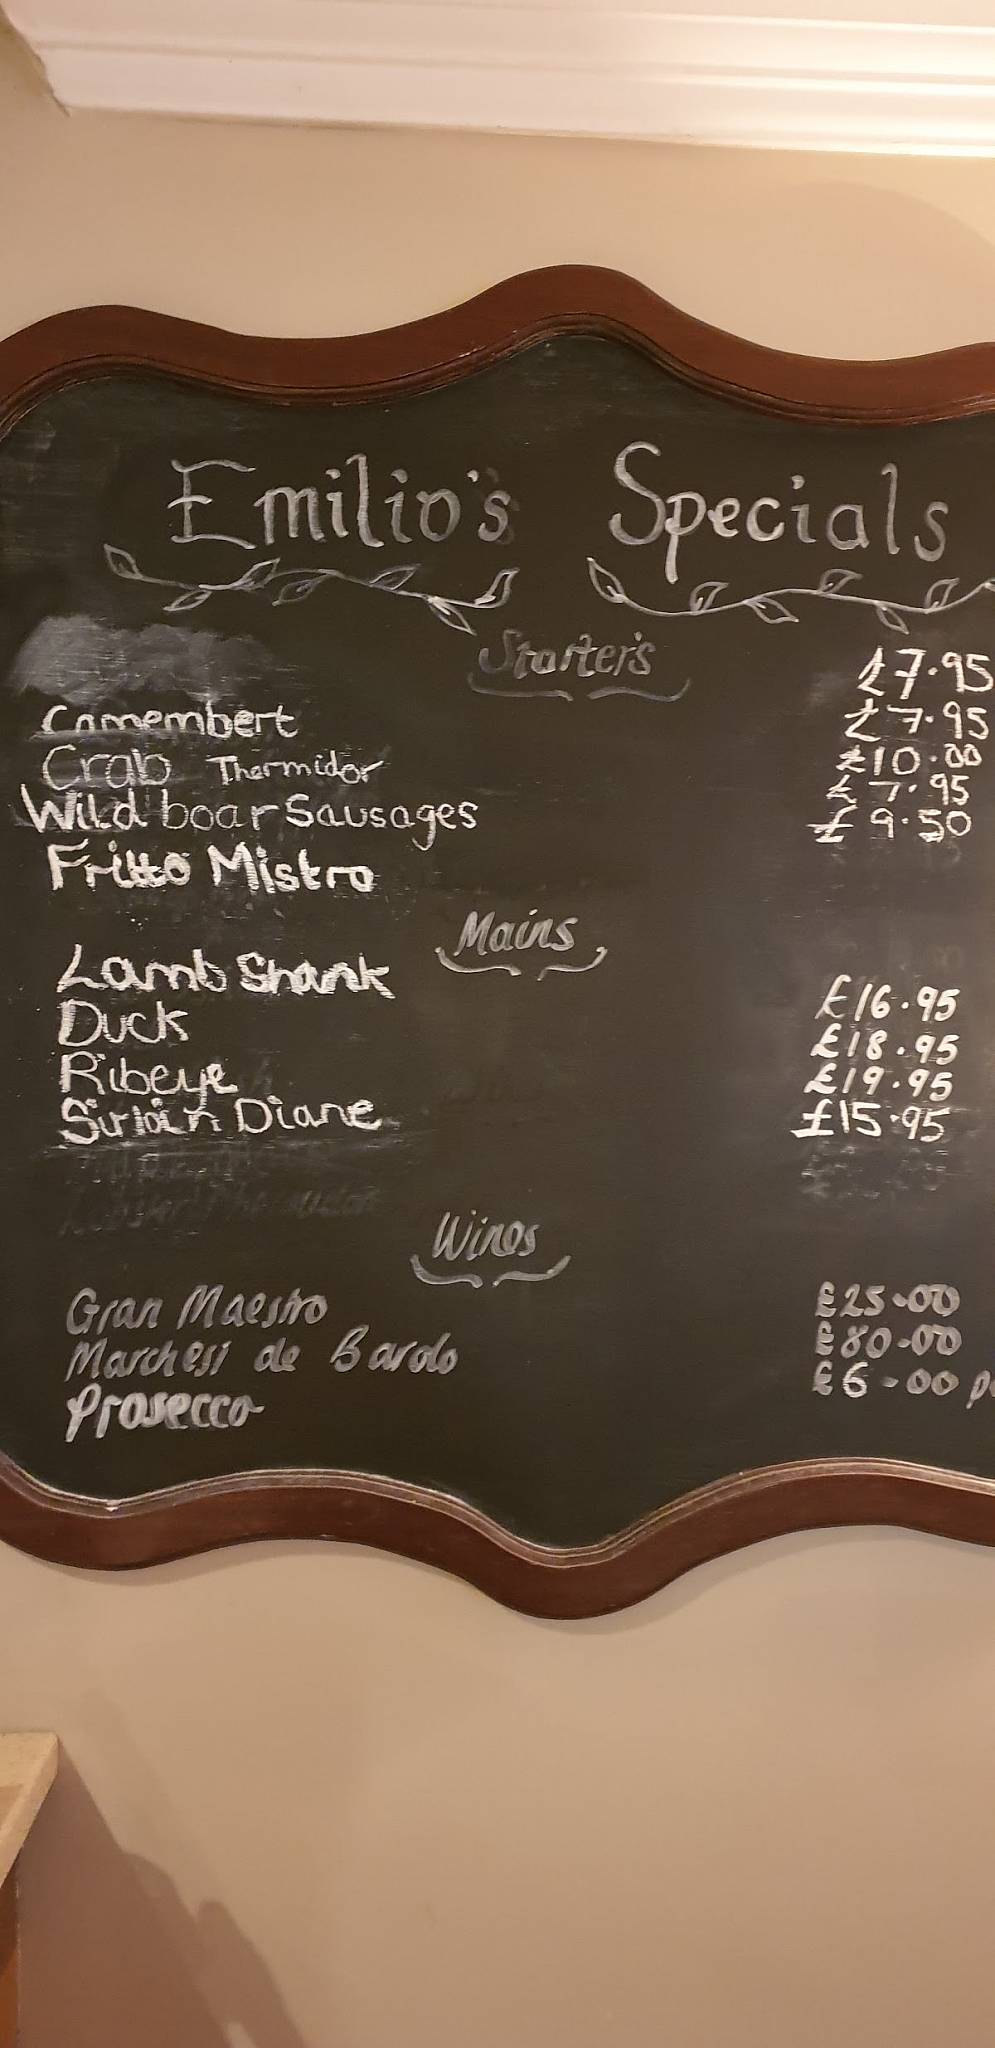 Emilio's Specials
Starter's
£7.95
Camembert £7.95
Crab Thermidor £10.00
Wild boar Sausages £7.95
Fritto Mistro £9.50
Mains
Lamb Shank £16.95
Duck £18.95
Ribeye £19.95
Sirloin Diane £15.95
Wines
Gran Maestro £25.00
Marchesi de Barolo £80.00
Prosecco £6.00